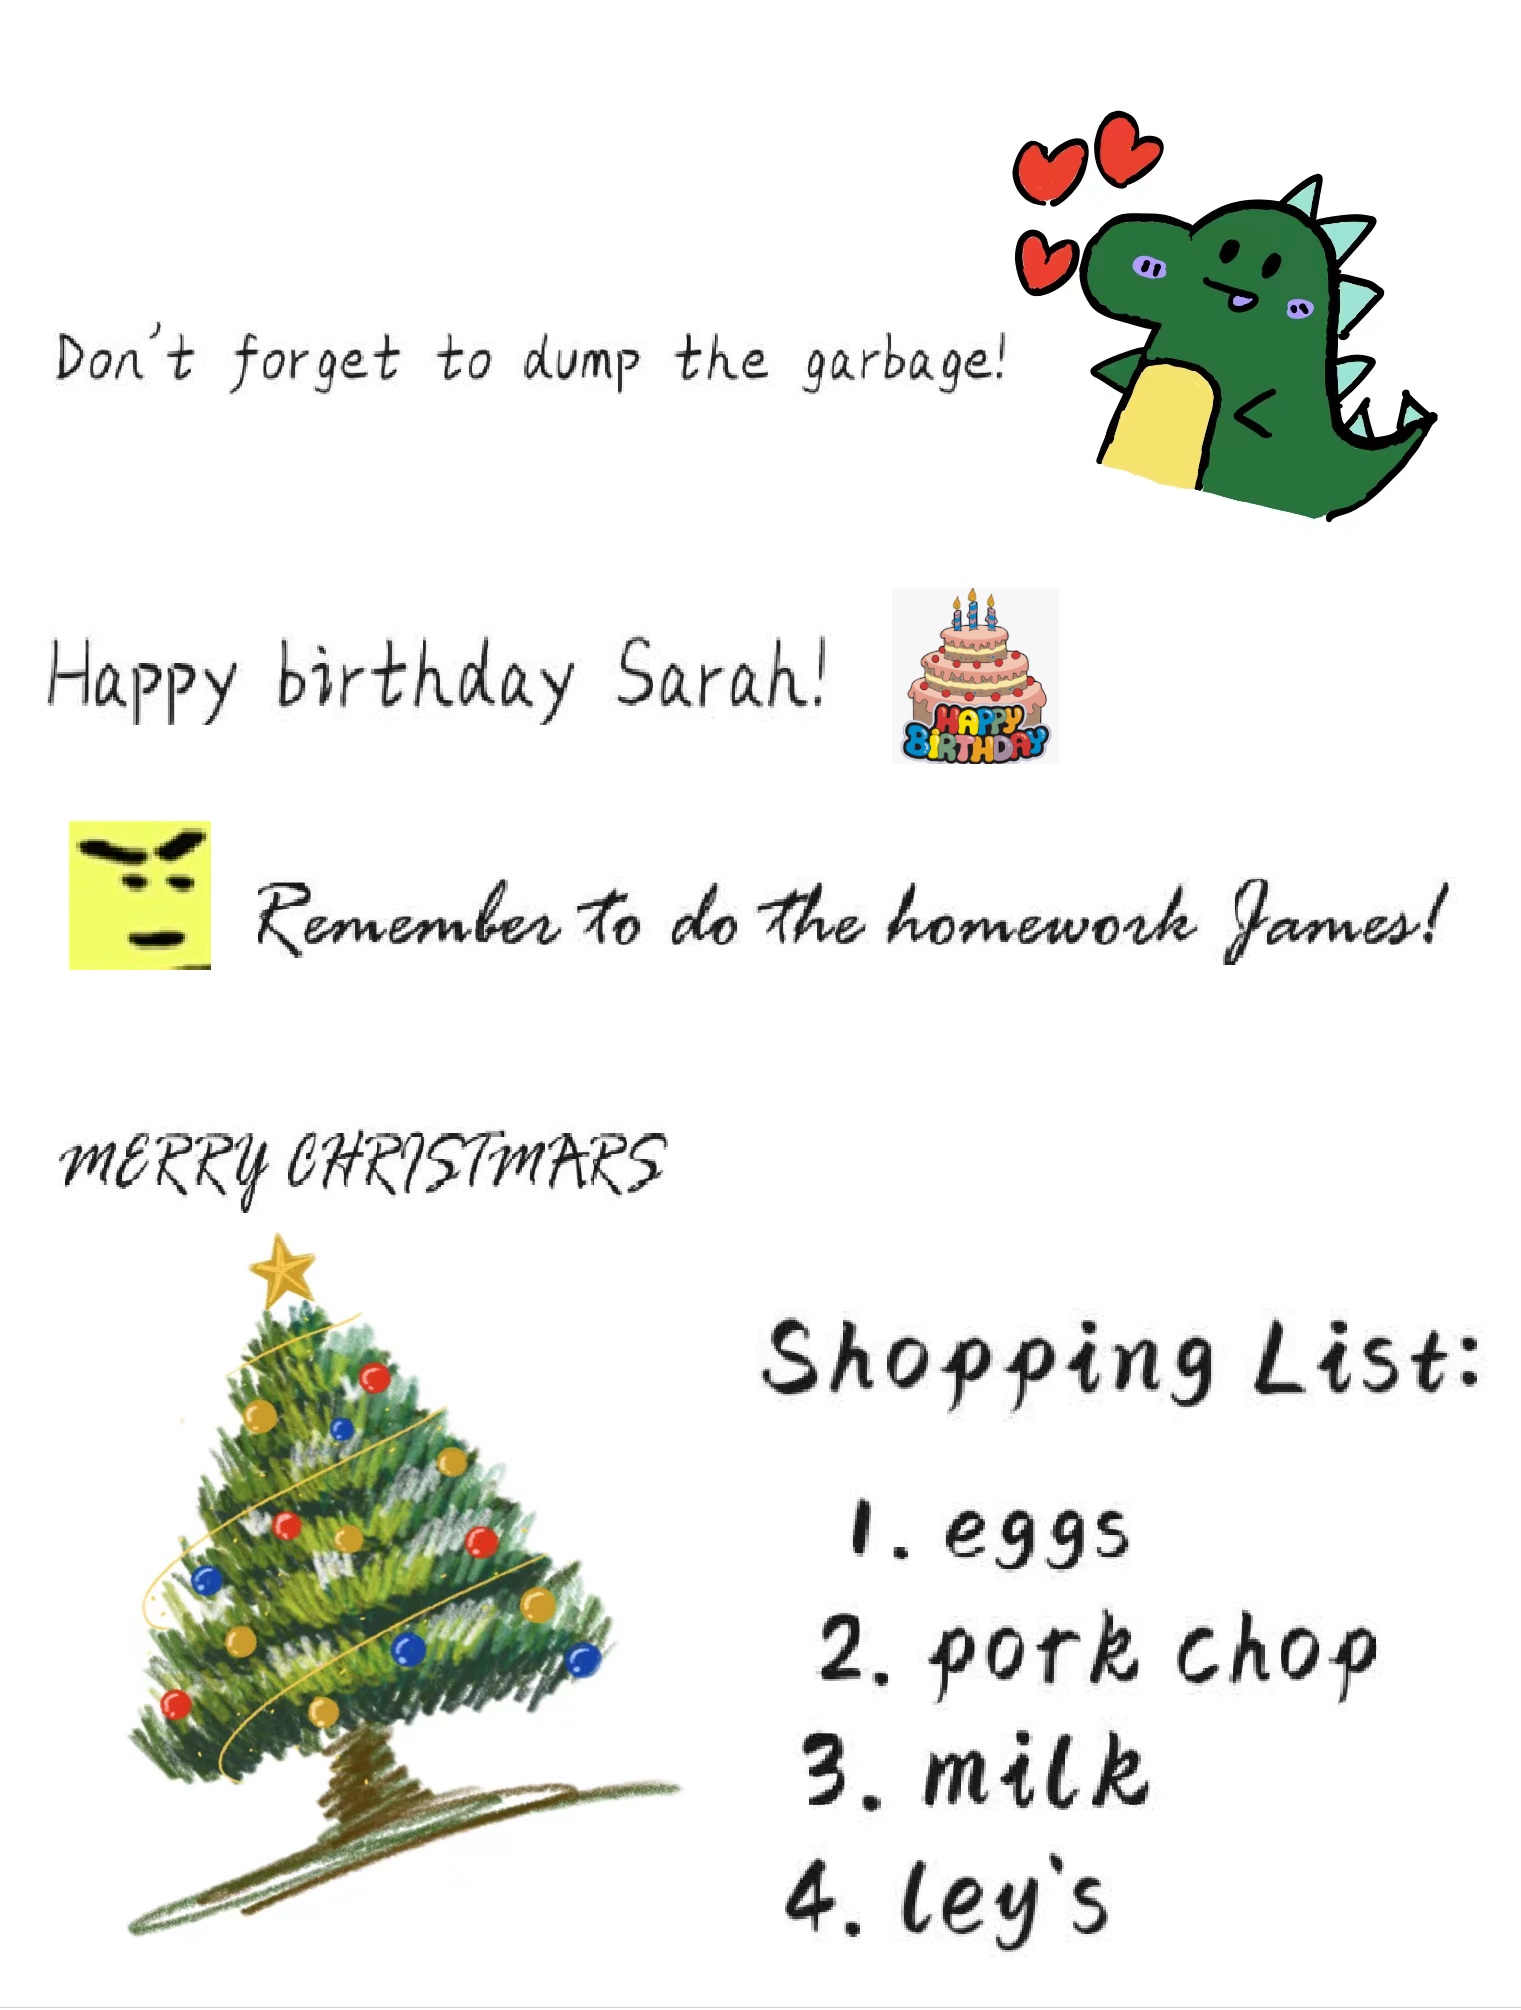 Don't forget to dump the garbage!
Happy birthday Sarah!
HAPPY
BIRTHDAY
Remember to do the homework James!
MERRY CHRISTMARS
Shopping List:
1. eggs
2. pork chop
3. milk
4. ley's